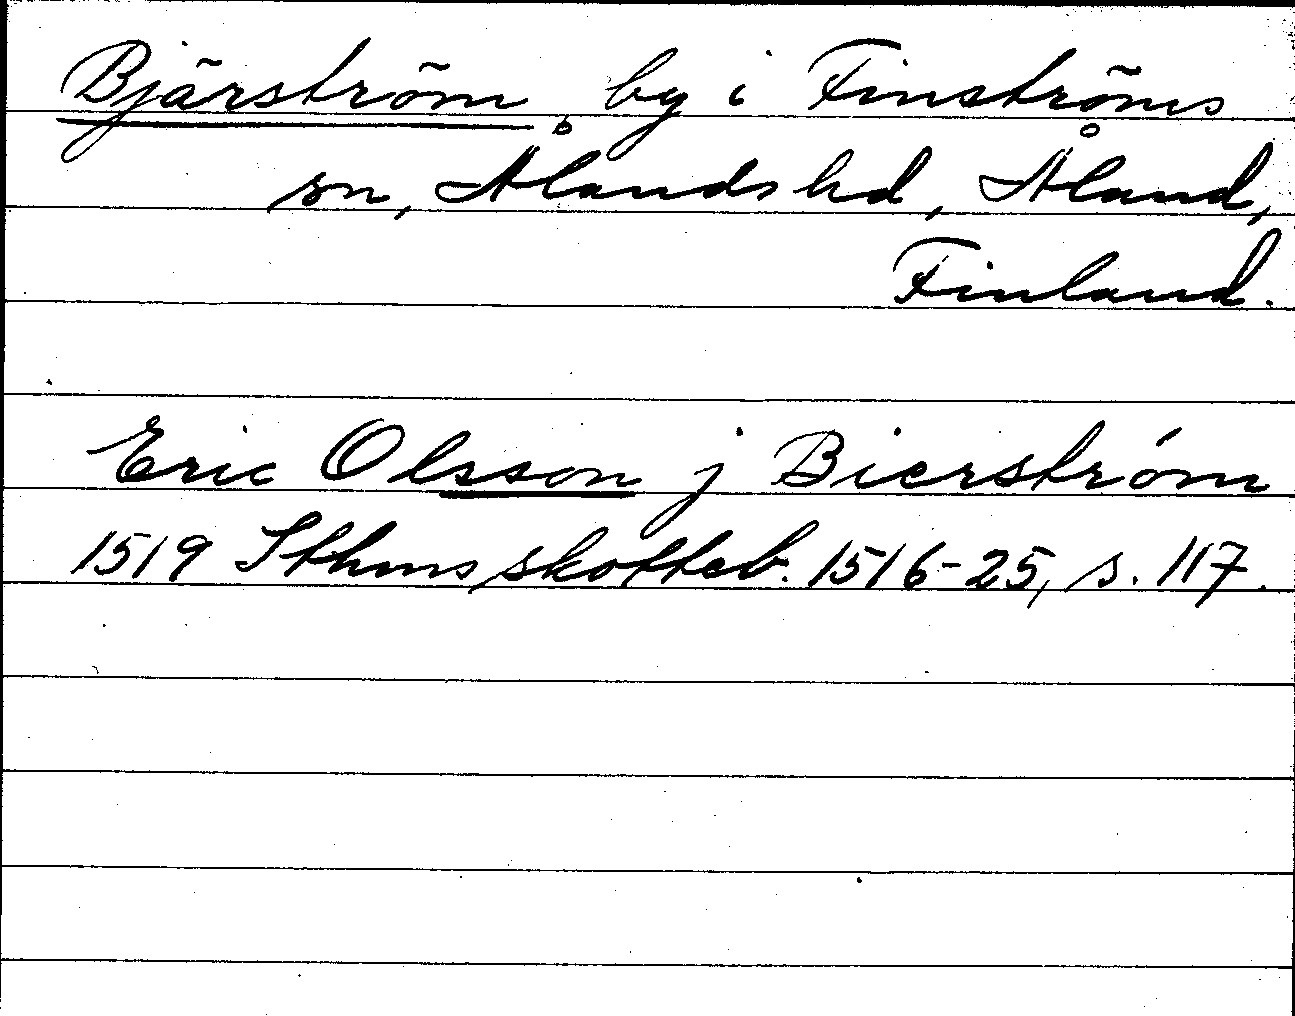 Bjärström by i Finströms
sn, Ålands hd, Åland,
Finland.
Eric Olsson j Bierström
1519 Sthms skotteb. 1516-25, s. 117.